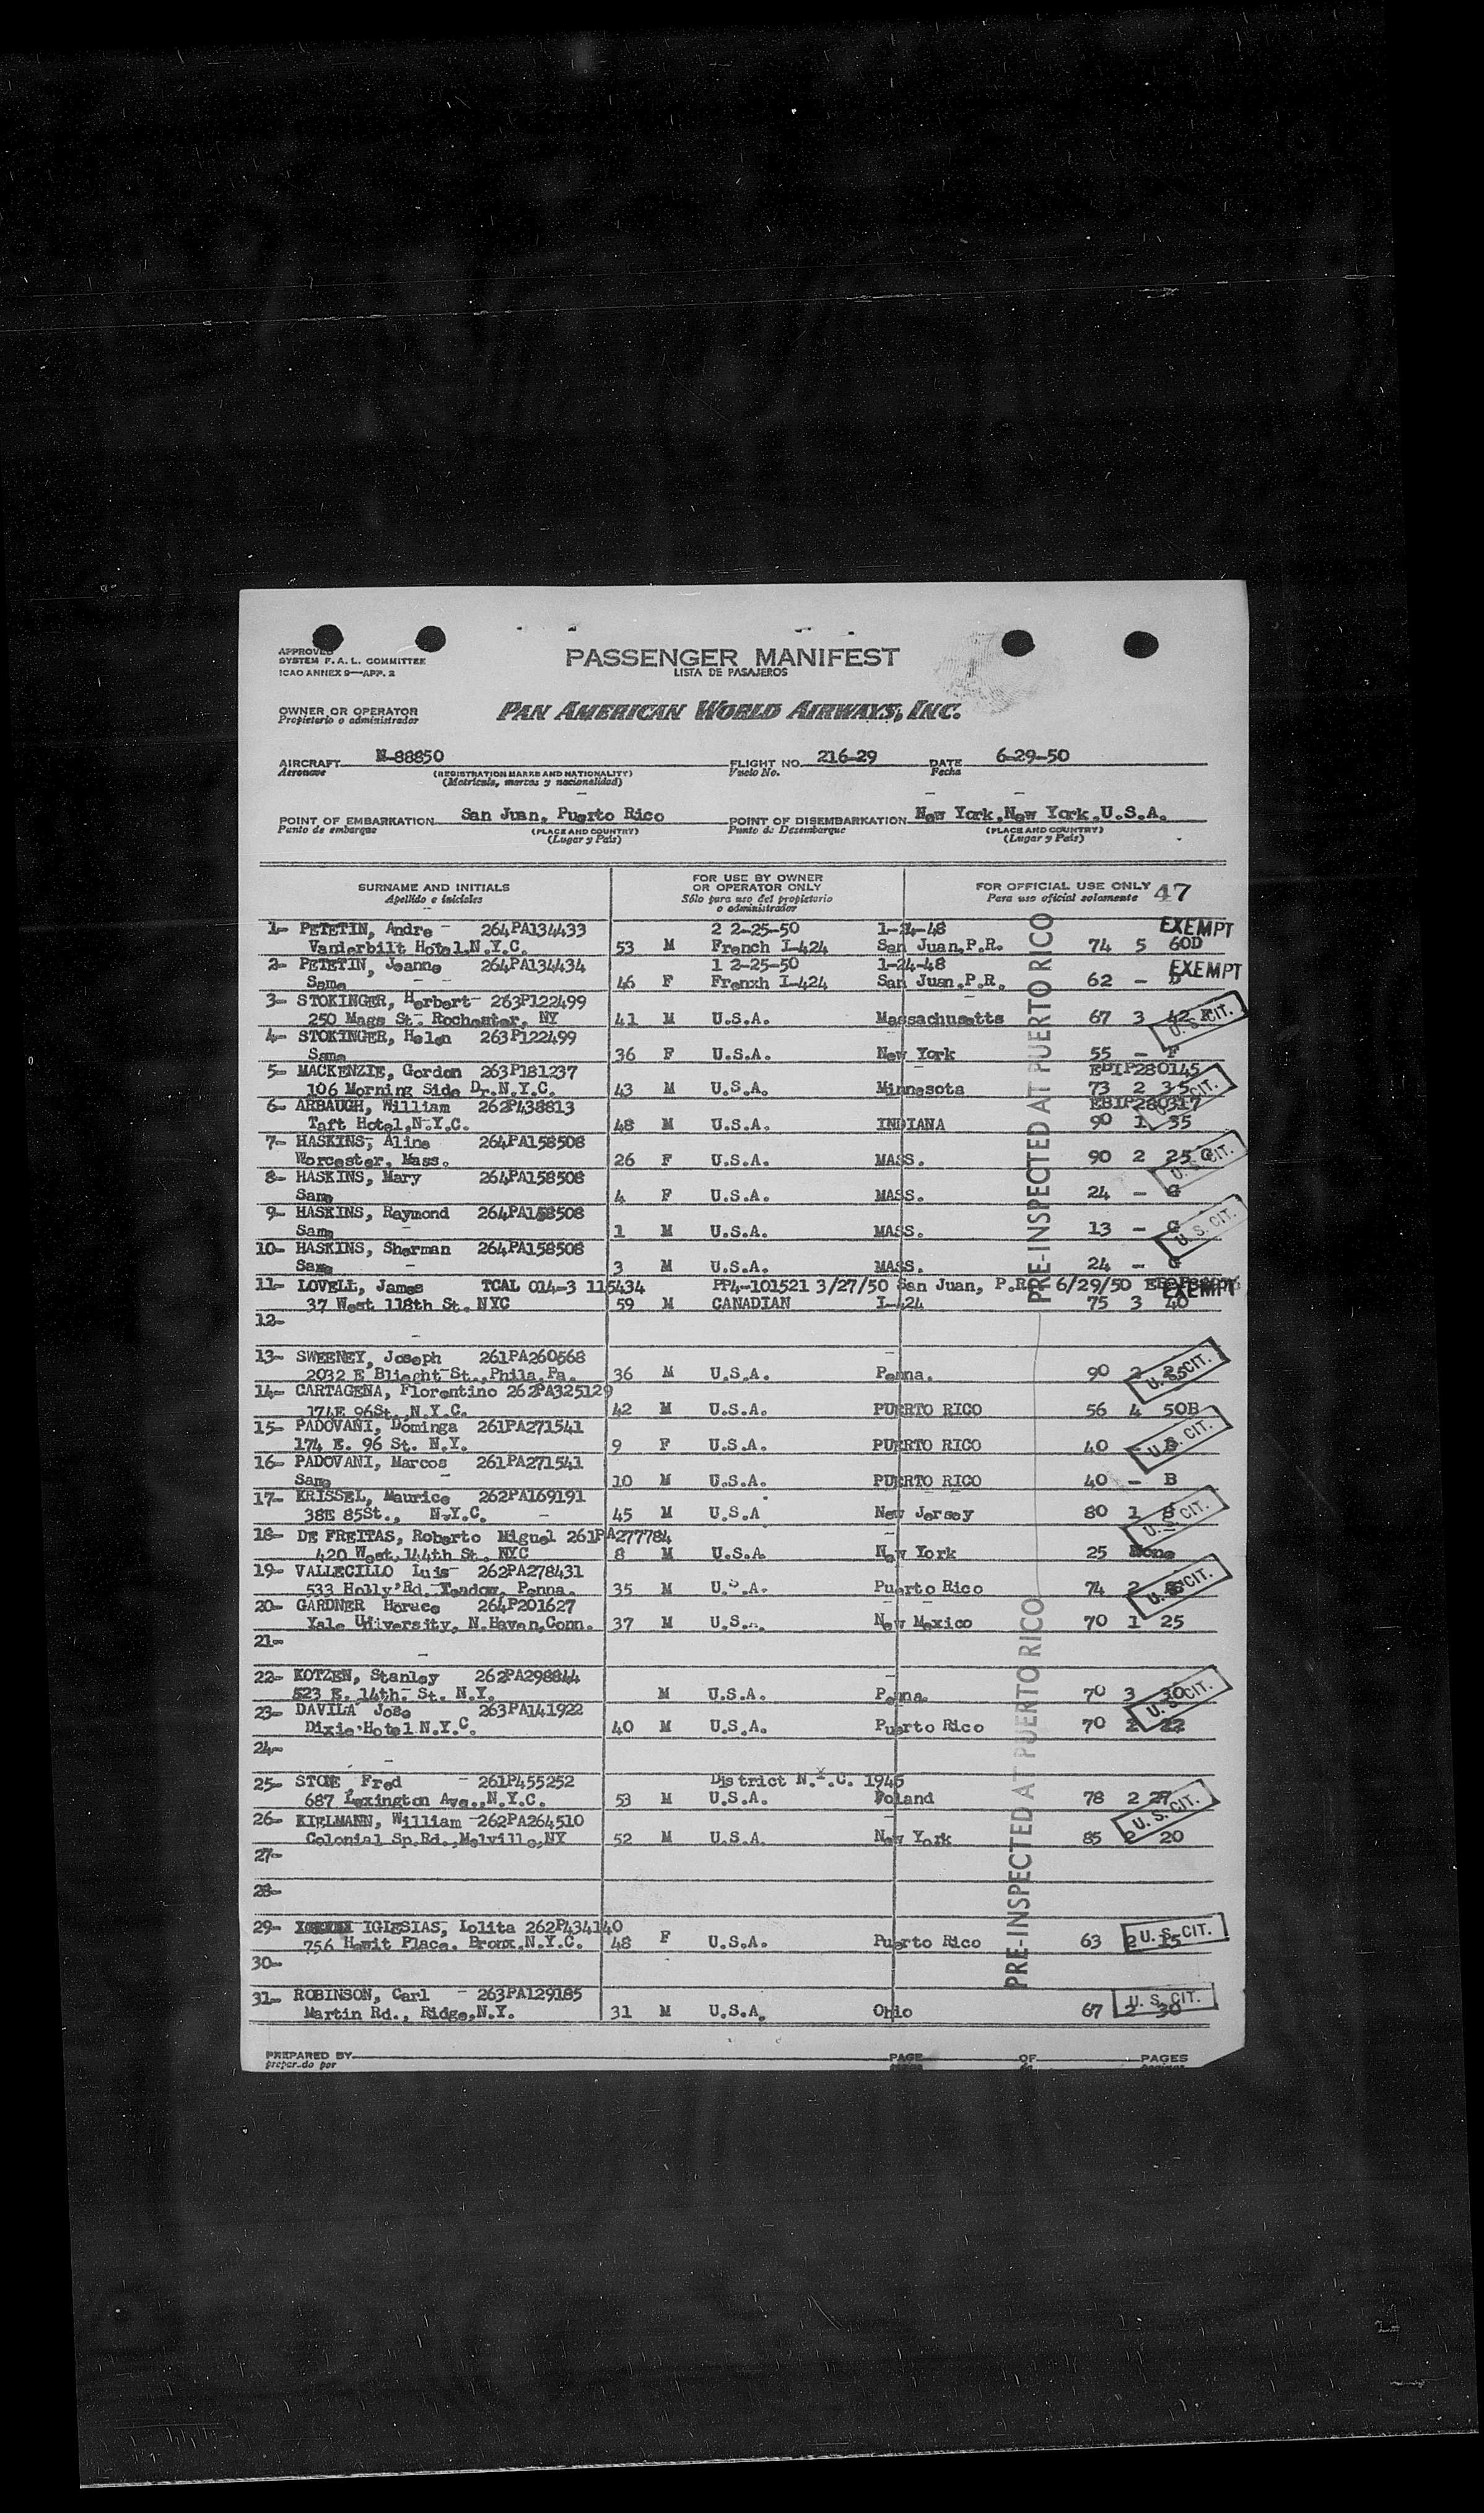 APPROVED
SYSTEM F. A. L. COMMITTEE
ICAO ANNEX 9—APP. 2
PASSENGER MANIFEST
LISTA DE PASAJEROS
OWNER OR OPERATOR
Propietario o administrador
PAN AMERICAN WORLD AIRWAYS, INC.
AIRCRAFT N-88850 FLIGHT NO. 216-29 DATE 6-29-50
Aeronave (REGISTRATION MARKS AND NATIONALITY) Vuelo No. Fecha
(Matricula, marcas y nacionalidad)
POINT OF EMBARKATION San Juan, Puerto Rico POINT OF DISEMBARKATION New York,New York,U.S.A.
Punto de embarque (PLACE AND COUNTRY) Punto de Desembarque (PLACE AND COUNTRY)
(Lugar y Pais) (Lugar y Pais)
SURNAME AND INITIALS FOR USE BY OWNER OR OPERATOR ONLY FOR OFFICIAL USE ONLY 47
Apellido e iniciales Sólo para uso del propietario o administrador Para uso oficial solamente
1- PETETIN, Andre - 264PA134433 2 2-25-50 1-24-48 EXEMPT
Vanderbilt Hotel,N.Y.C. 53 M French I-424 San Juan,P.R. 74 5 60D
2- PETETIN, Jeanne 264PA134434 1 2-25-50 1-24-48 EXEMPT
Same 46 F Frenxh I-424 San Juan,P.R. 62 -
3- STOKINGER, Herbert- 263P122499
250 Mags St- Rochester, NY 41 M U.S.A. Massachusetts 67 3 42 F U. S. CIT.
4- STOKINGER, Helen 263P122499
Same 36 F U.S.A. New York 55 - F
5- MACKENZIE, Gordon 263P181237 EBIP280145
106 Morning Side Dr.N.Y.C. 43 M U.S.A. Minnesota 73 2 35 U. S. CIT.
6- ARBAUGH, William 262P438813 EBIP280317
Taft Hotel,N.Y.C. 48 M U.S.A. INDIANA 90 1 35
7- HASKINS, Aline 264PA158508
Worcester, Mass. 26 F U.S.A. MASS. 90 2 25 G U. S. CIT.
8- HASKINS, Mary 264PA158508
Same 4 F U.S.A. MASS. 24 - G
9- HASKINS, Raymond 264PA158508
Same 1 M U.S.A. MASS. 13 - G U. S. CIT.
10- HASKINS, Sherman 264PA158508
Same 3 M U.S.A. MASS. 24 - G
11- LOVELL, James TCAL 014-3 115434 PP4-101521 3/27/50 San Juan, P.R. 6/29/50 EXEMPT
37 West 118th St. NYC 59 M CANADIAN I-424 75 3 40
12-
13- SWEENEY, Joseph 261PA260568
2032 E Blieght St.,Phila,Pa. 36 M U.S.A. Penna. 90 2 25 U. S. CIT.
14- CARTAGENA, Florentino 262PA325129
174E 96St.,N.Y.C. 42 M U.S.A. PUERTO RICO 56 4 50B
15- PADOVANI, Dominga 261PA271541
174 E. 96 St. N.Y. 9 F U.S.A. PUERTO RICO 40 - B U. S. CIT.
16- PADOVANI, Marcos 261PA271541
Same 10 M U.S.A. PUERTO RICO 40 - B
17- KRISSEL, Maurice 262PA169191
38E 85St., N.Y.C. 45 M U.S.A New Jersey 80 1 8 U. S. CIT.
18- DE FREITAS, Roberto Miguel 261PA277784
420 West,144th St. NYC 8 M U.S.A. New York 25 None
19- VALLECILLO Luis 262PA278431
533 Holly Rd. Yeadow, Penna. 35 M U.S.A. Puerto Rico 74 2 U. S. CIT.
20- GARDNER Horace 264P201627
Yale University, N.Haven,Conn. 37 M U.S.A. New Mexico 70 1 25
21-
22- KOTZEN, Stanley 262PA298844
523 E. 14th. St. N.Y. M U.S.A. Penna. 70 3 30 U. S. CIT.
23- DAVILA Jose 263PA141922
Dixie Hotel N.Y.C. 40 M U.S.A. Puerto Rico 70 2 22
24-
25- STONE ,Fred - 261P455252 District N.Y.C. 1945
687 Lexington Ave.,N.Y.C. 53 M U.S.A. Poland 78 2 27
26- KIELMANN, William -262PA264510 U. S. CIT.
Colonial Sp.Rd.,Melville,NY 52 M U.S.A. New York 85 2 20
27-
28-
29- IGLESIAS, Lolita 262P434140
756 Hewit Place. Bronx,N.Y.C. 48 F U.S.A. Puerto Rico 63 2 15 U. S. CIT.
30-
31- ROBINSON, Carl - 263PA129185
Martin Rd., Ridge,N.Y. 31 M U.S.A. Ohio 67 2 30 U. S. CIT.
PRE-INSPECTED AT PUERTO RICO
PRE-INSPECTED AT PUERTO RICO
PREPARED BY PAGE OF PAGES
preparado por